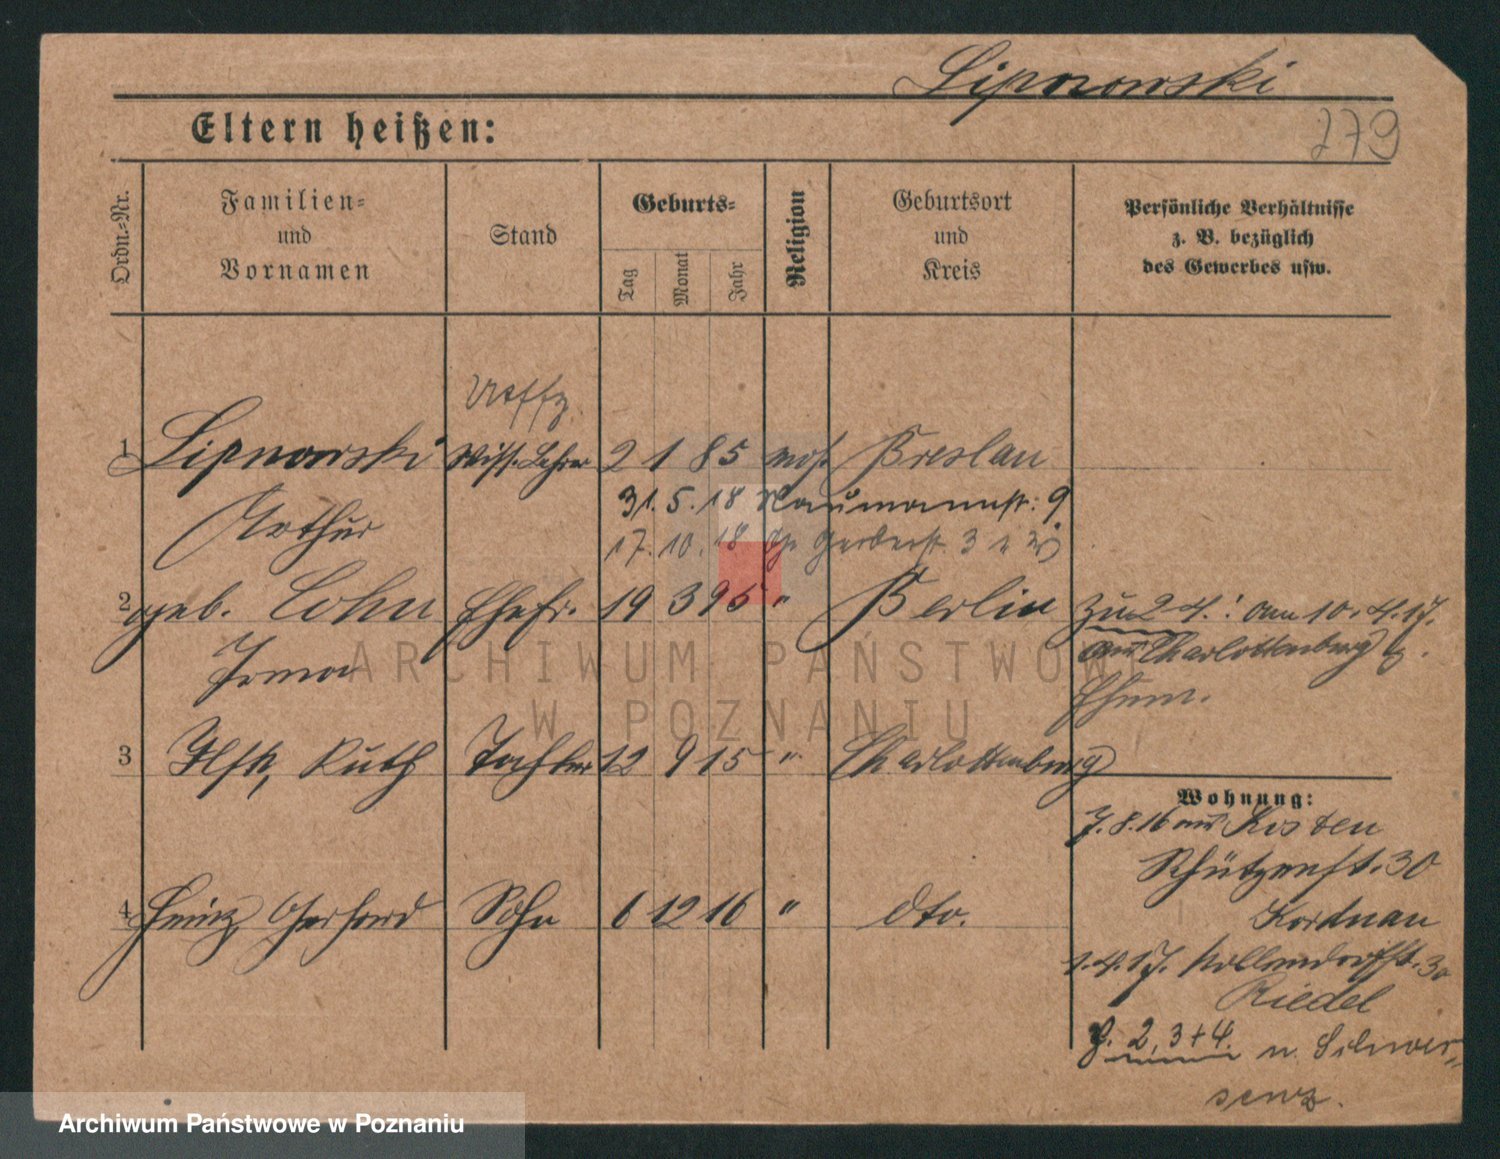 Lipnowski
279
Eltern heißen:
Ordn.-Nr.
Familien-
und
Vornamen
Stand
Geburts-
Tag
Monat
Jahr
Religion
Geburtsort
und
Kreis
Persönliche Verhältnisse
z. B. bezüglich
des Gewerbes usw.
Uoffz.
1 Lipnowski Wiss. Lehrer 2 1 85 mos. Breslau
Arthur 31. 5. 18 Naumannstr. 9
17. 10. 18 Gerberst. 3
2 geb. Cohn Ehefr. 19 3 95 " Berlin
Irma
zu 2-4: am 10. 4. 17.
aus Charlottenburg z.
Ehem.
3 Ilse, Ruth Tochter 12 9 15 " Charlottenburg
4 Heinz Gerhard Sohn 6 12 16 " dto.
Wohnung:
7. 8. 16 aus Kosten
Schützenst. 30
Kordnau
1. 4. 17. Nollendorffst. 30
Riedel
2, 3 + 4. n. Schwer-
senz.
ARCHIWUM PAŃSTWOWE
W POZNANIU
Archiwum Państwowe w Poznaniu